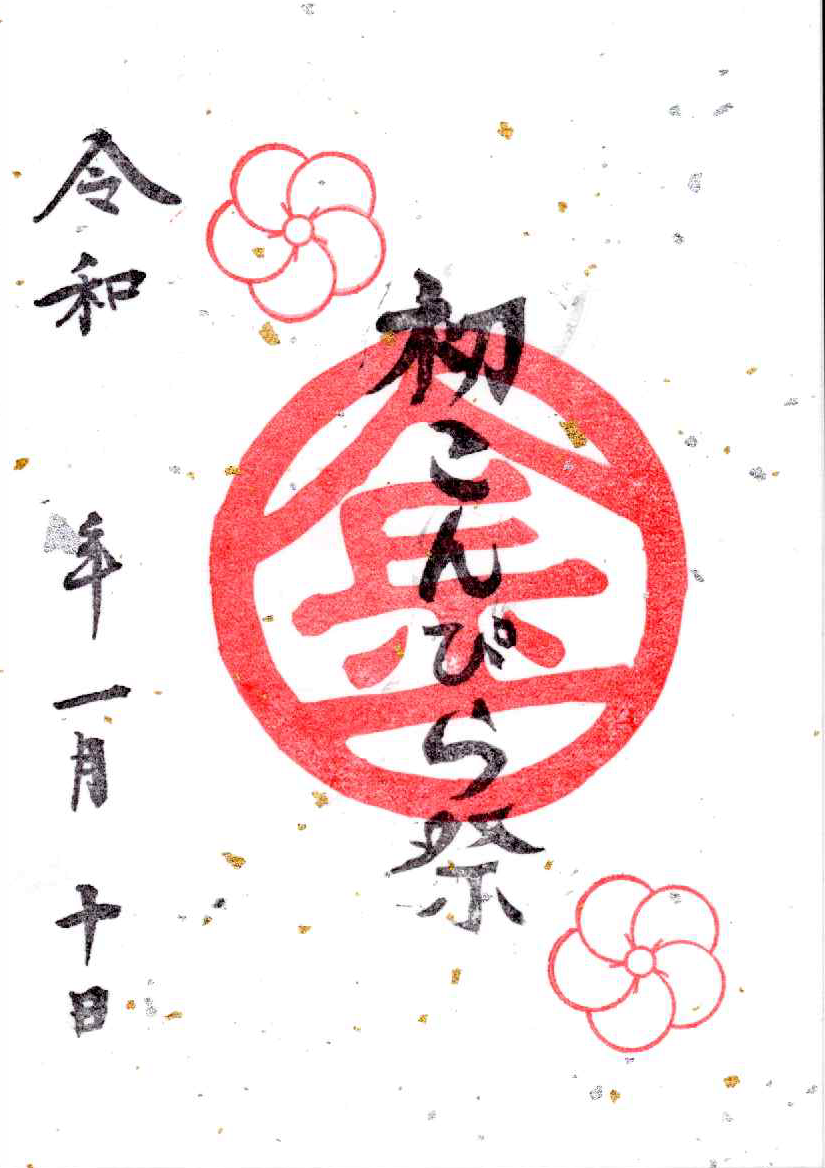 初こんぴら祭
金
令和　年一月十日